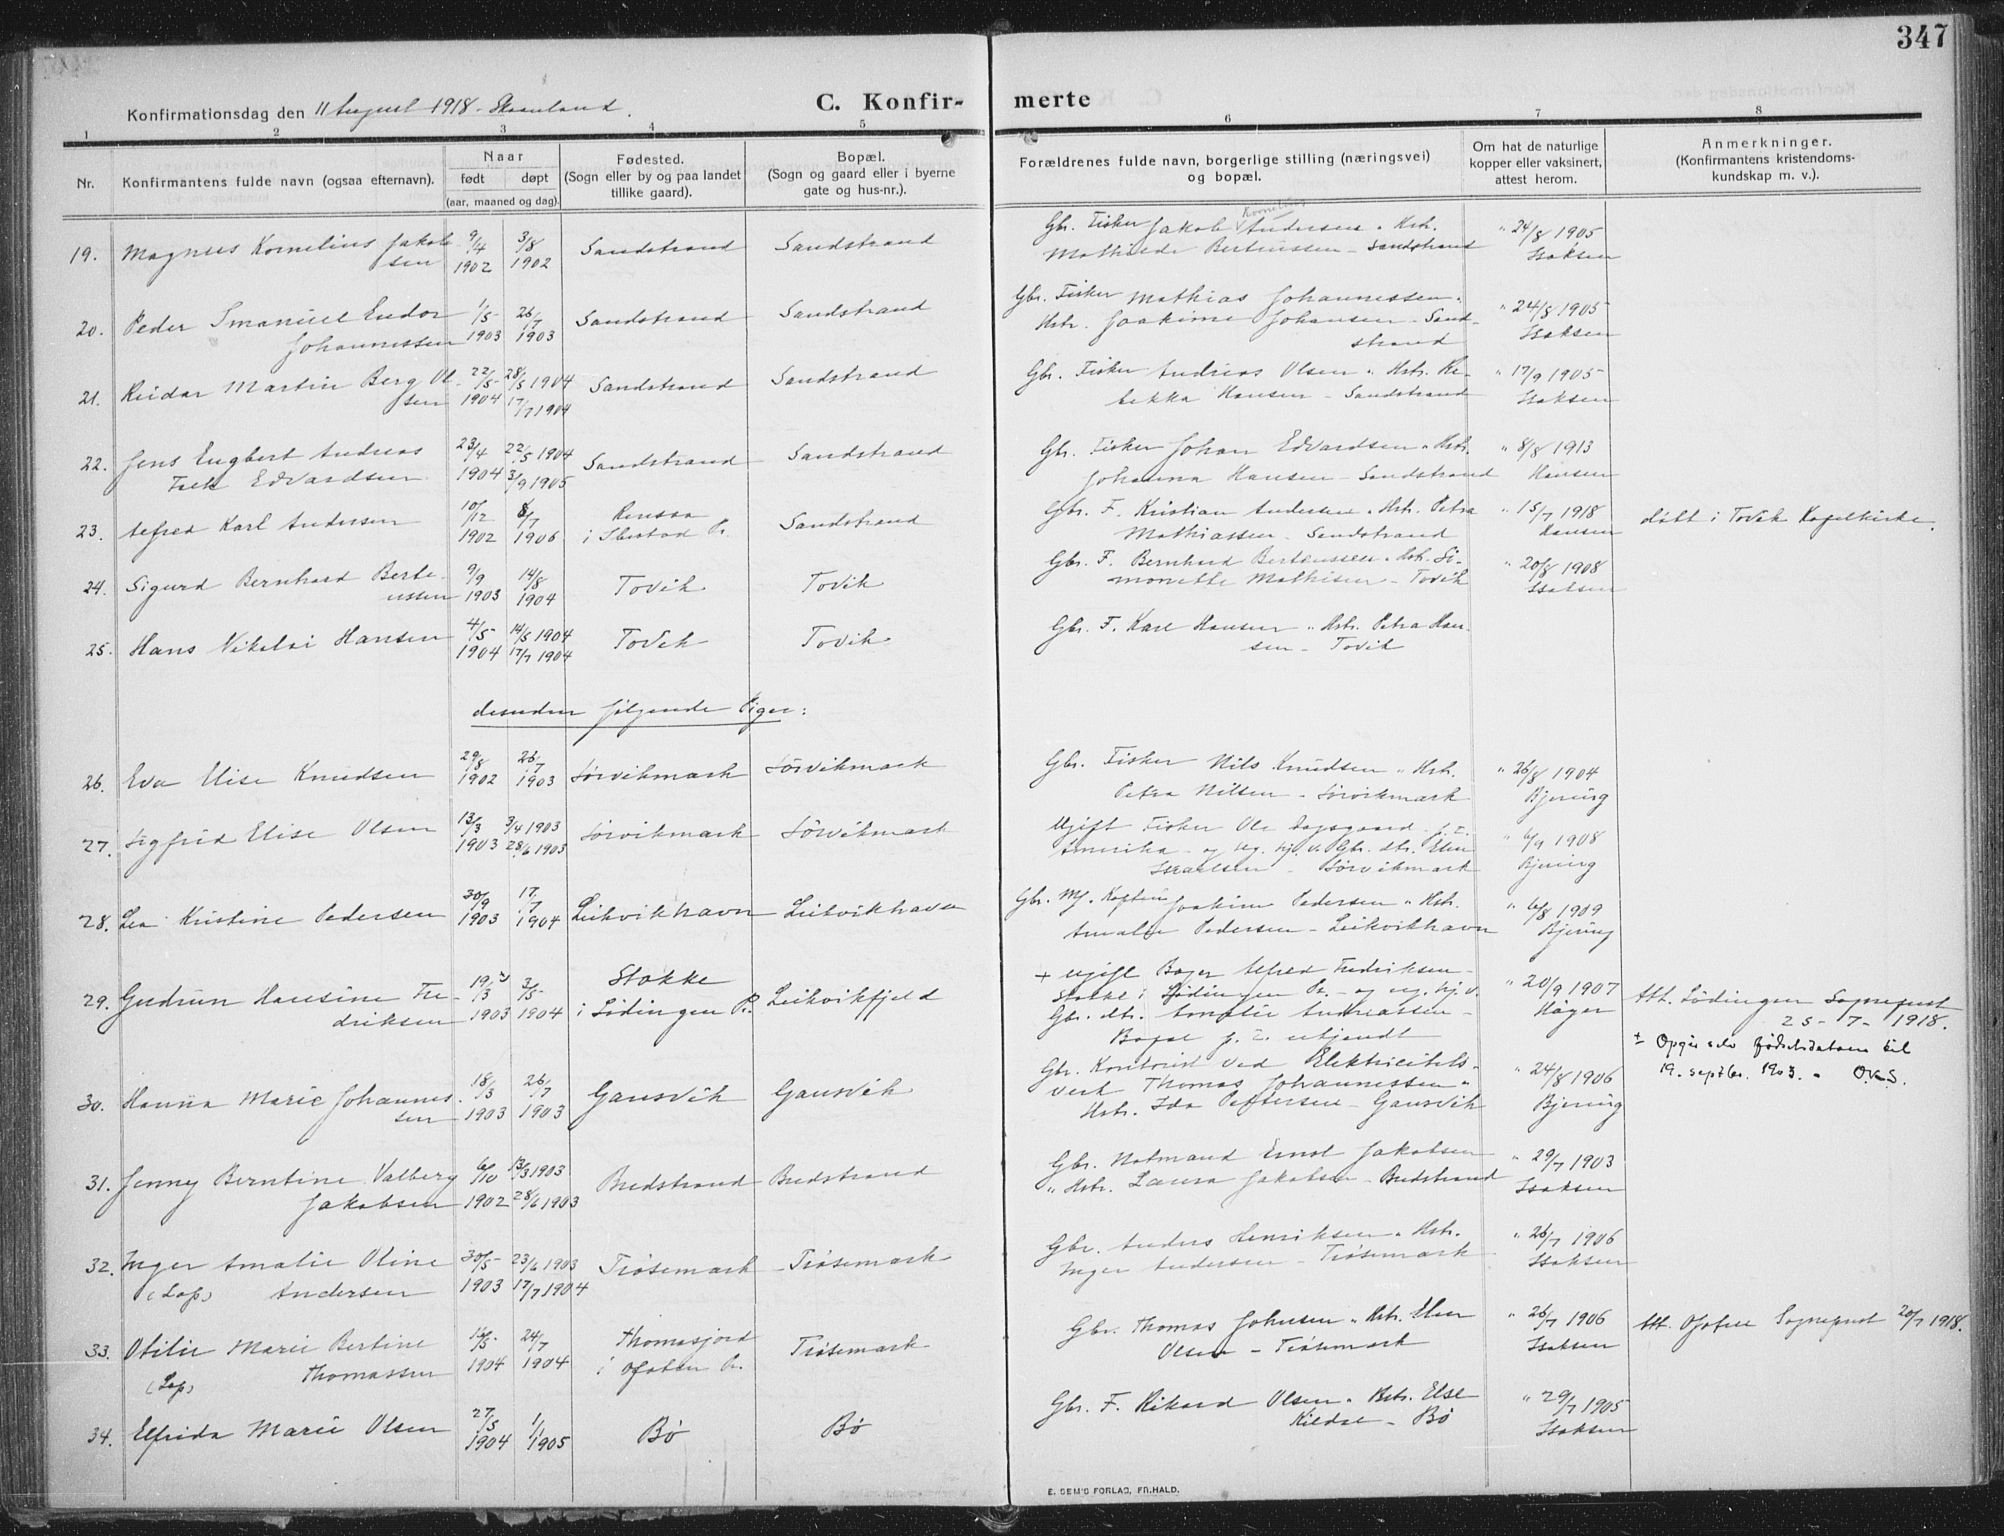 347
Konfirmationsdag den 11 August 1918 - Skaanland.
C. Konfirmerte
1 2 3 4 5 6 7 8
Nr.
Konfirmantens fulde navn (ogsaa efternavn).
Naar
født døpt
(aar, maaned og dag).
Fødested.
(Sogn eller by og paa landet
tillike gaard).
Bopæl.
(Sogn og gaard eller i byerne
gate og hus-nr.).
Forældrenes fulde navn, borgerlige stilling (næringsvei)
og bopæl.
Om hat de naturlige
kopper eller vaksinert,
attest herom.
Anmerkninger.
(Konfirmantens kristendoms-
kundskap m. v.).
19. Magnus Kornelius Jakob- 9/4 3/8 Sandstrand Sandstrand Gbr. Fisker Jakob Kornelius Andersen " Hstr. " 24/8 1905
sen 1902 1902 Mathilde Berteussen - Sandstrand Isaksen
20. Peder Imanuel Endor 1/5- 26/7 Sandstrand Sandstrand Gbr. Fisker Mathias Johannessen " " 24/8 1905
Johannessen 1903 1903 Hstr. Joakime Johansen - Sand- Isaksen
strand
21. Reidar Martin Berg Ol- 22/5- 28/5 1904 Sandstrand Sandstrand Gbr. Fisker Andreas Olsen " Hstr. Re- " 17/9 1905
sen 1904 17/7 1904 bekka Hansen - Sandstrand Isaksen
22. Jens Engbert Andreas 23/4 22/5 1904 Sandstrand Sandstrand Gbr. Fisker Johan Edvardsen " Hstr. " 8/8 1913
Falk Edvardsen 1904 3/9 1905 Johanna Hansen - Sandstrand Hansen
23. Alfred Karl Andersen 10/12 8/7 Rensaa Sandstrand Gbr. F. Kristian Andersen " Hstr. Petra " 15/7 1918 døbt i Tovik Kapelkirke.
1902 1906 i Ibestad Pr. Mathiassen - Sandstrand Hansen
24. Sigurd Bernhard Berte- 9/9 14/8 Tovik Tovik Gbr. F. Bernhard Berteussen " Hstr. Si- " 20/8 1908
ussen 1903 1904 monette Mathisen - Tovik Isaksen
25. Hans Nikolai Hansen 4/5- 14/5 1904 Tovik Tovik Gbr. F. Karl Hansen " Hstr. Petra Han-
1904 17/7 1904 sen - Tovik
desuden følgende Piger:
26. Eva Elise Knudsen 29/8 26/7 Sørvikmark Sørvikmark Gbr. Fisker Nils Knudsen " Hstr. " 26/8 1904
1902 1903 Petra Nilsen - Sørvikmark Bjering
27. Sigfrid Elise Olsen 13/3 3/4 1903 Sørvikmark Sørvikmark Ugift Fisker Ole f. T. " 6/9 1908
1903 28/6 1903 Amerika - og ug. hj. v. Gbr. dtr. Elen Bjering
Israelsen - Sørvikmark
28. Lea Kristine Pedersen 30/9 17/7 Leikvikhavn Leikvikhavn Gbr. Joakim Pedersen " Hstr. " 6/8 1909
1903 1904 Amalie Pedersen - Leikvikhavn Bjering
29. Gudrun Hansine Fre- 19/3 3/5- Stokke Leikvikfjeld + Ugift Bager Alfred Fredriksen - " 20/9 1907 Att. Lødingen Sogneprest
driksen 1903 1904 i Lødingen Pr. Stokke i Lødingen Pr. - og ug. hj. v. Høyer 25-7-1918.
Gbr. dtr. Amalie Andreassen -
Bopæl f. T. ukjendt
± Opgir selv fødselsdatoen til
19. septbr. 1903. - O.v.S.
30. Hanna Marie Johannes- 18/3 26/7 Gausvik Gausvik Gbr. Kontorist ved Elektricitets- " 24/8 1906
sen 1903 1903 verk Thomas Johannessen " Bjering
Hstr. Ida Pettersen - Gausvik
31. Jenny Berntine Valberg 6/10 13/3 1903 Bredstrand Bredstrand Gbr. Notmand Ernst Jakobsen " 29/7 1903
Jakobsen 1902 28/6 1903 " Hstr. Laura Jakobsen - Bredstrand Isaksen
32. Inger Amalie Oline 30/5- 23/6 1903 Trøsemark Trøsemark Gbr. Anders Henriksen " Hstr. " 26/7 1906
(Lap) Andersen 1903 17/7 1904 Inger Andersen - Trøsemark Isaksen
33. Otilie Marie Bertine 16/5- 24/7 Thomasjord Trøsemark Gbr. Thomas Johnsen " Hstr. Elen " 26/7 1906 Att. Ofoten Sogneprest 20/7 1918.
(Lap) Thomassen 1904 1904 i Ofoten Pr. Olsen - Trøsemark Isaksen
34. Elfrida Marie Olsen 27/5 1/1 Bø Bø Gbr. F. Rikard Olsen " Hstr. Else " 29/7 1905
1904 1905 Kildal - Bø Isaksen
E. SEM'S FORLAG, FR.HALD.